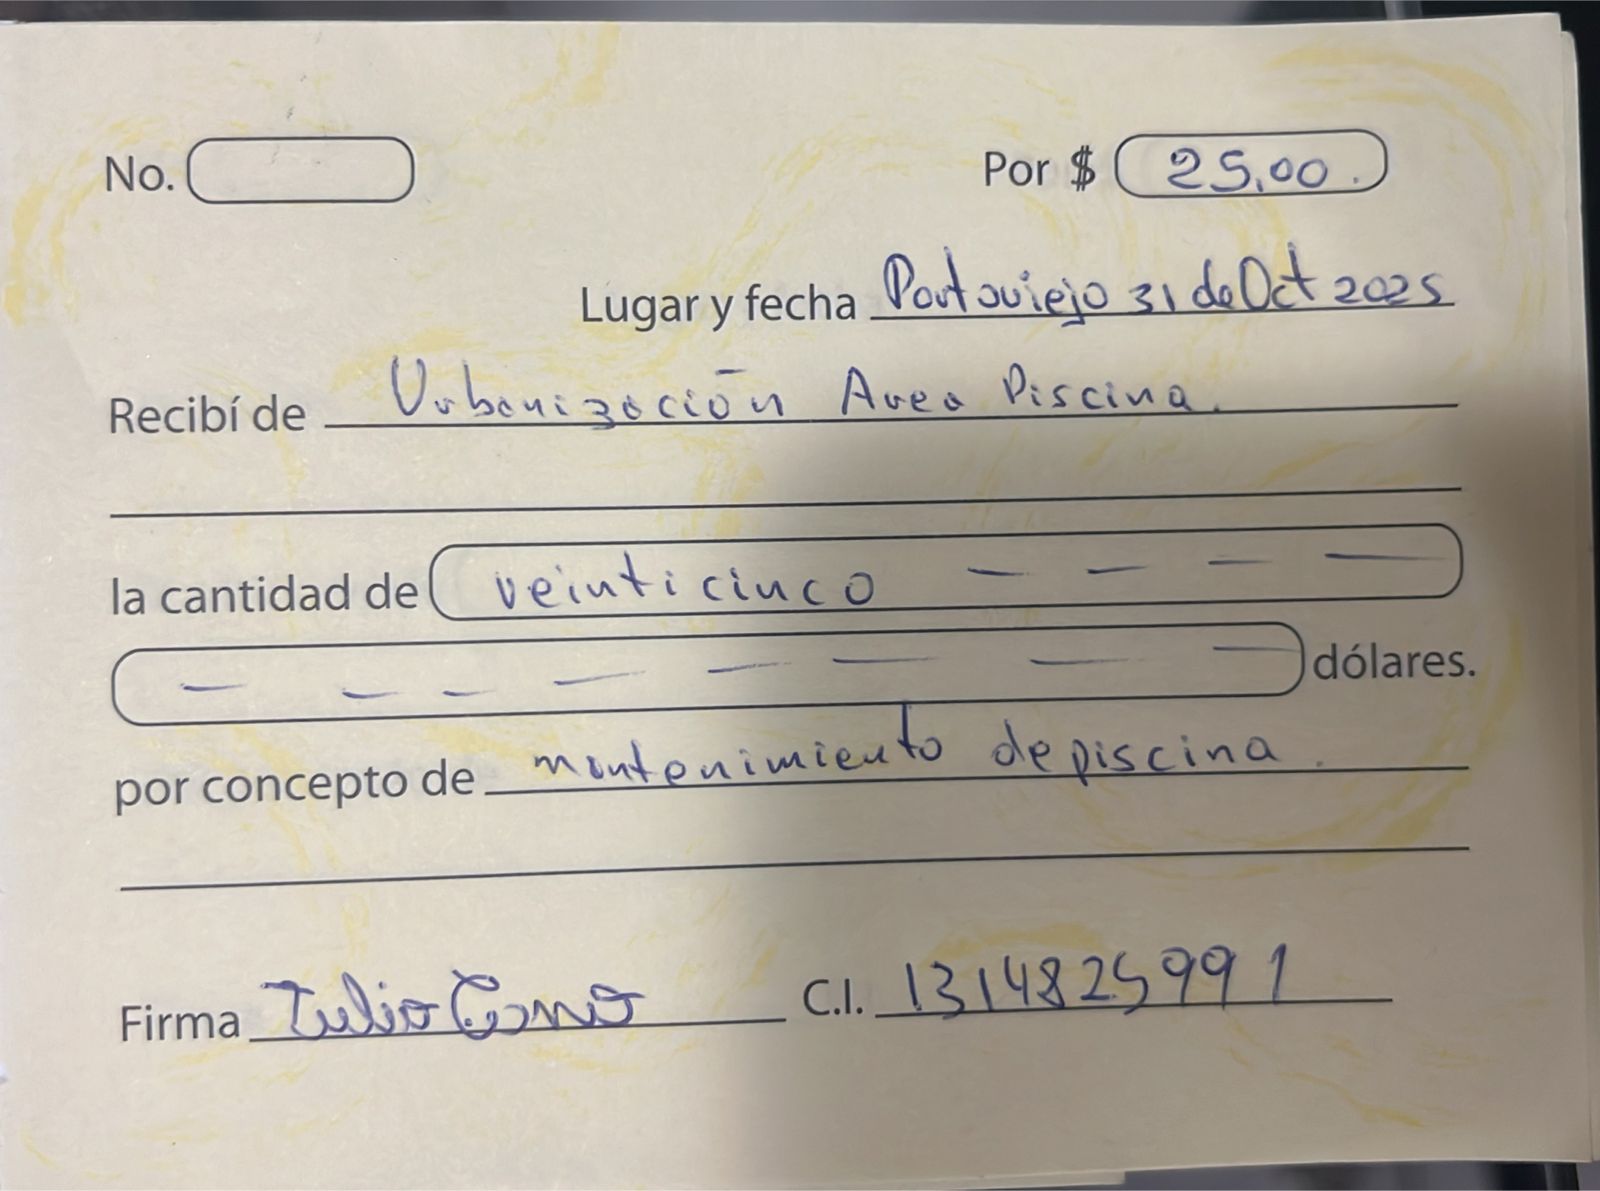 No. Por $ 25,00.
Lugar y fecha Portoviejo 31 de Oct 2025
Recibí de Urbanización Area Piscina.
la cantidad de veinticinco — — — —
— — — — — — — dólares.
por concepto de mantenimiento de piscina.
Firma Julio C.I. 1314825991